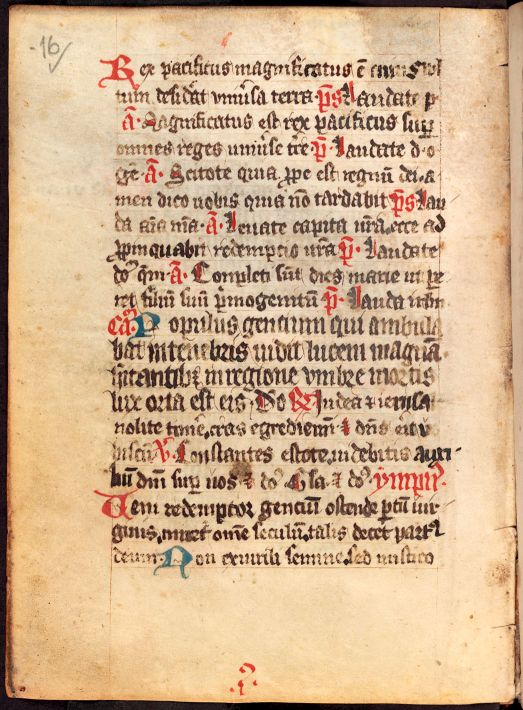 16
Rex pacificus magnificatus e cui9 vul
tum desidat univsa terra. ps Laudate p
A. Magnificatus est rex pacificus sup
omnes reges univse tre. p. Laudate d. o
ge. A. Scitote quia ppe est regnum dei. a
men dico vobis quia no tardabit. ps. Lau
da aia mea. A. Levate capita vra. ecce ad
ppinquabit redemptio vra. p. Laudate
do qm. A. Completi sut dies marie ut pe
ret filiu suu pmogenitu. p. Lauda
Ca. Populus gentium qui ambula
bat in tenebris vidit lucem magna.
hitantib3 in regione umbre mortis
lux orta est eis. Do R Iudea et ierlm
nolite time. cras egrediem et dns eit vo
biscu. V. Constantes estote. videbitis auxi
liu dni sup vos et do. Gla. et do. ympn9
Veni redemptor gencium ostende ptu vir
ginis. miret ome seculum. talis decet part9
deum. Non ex virili semine. sed mistico